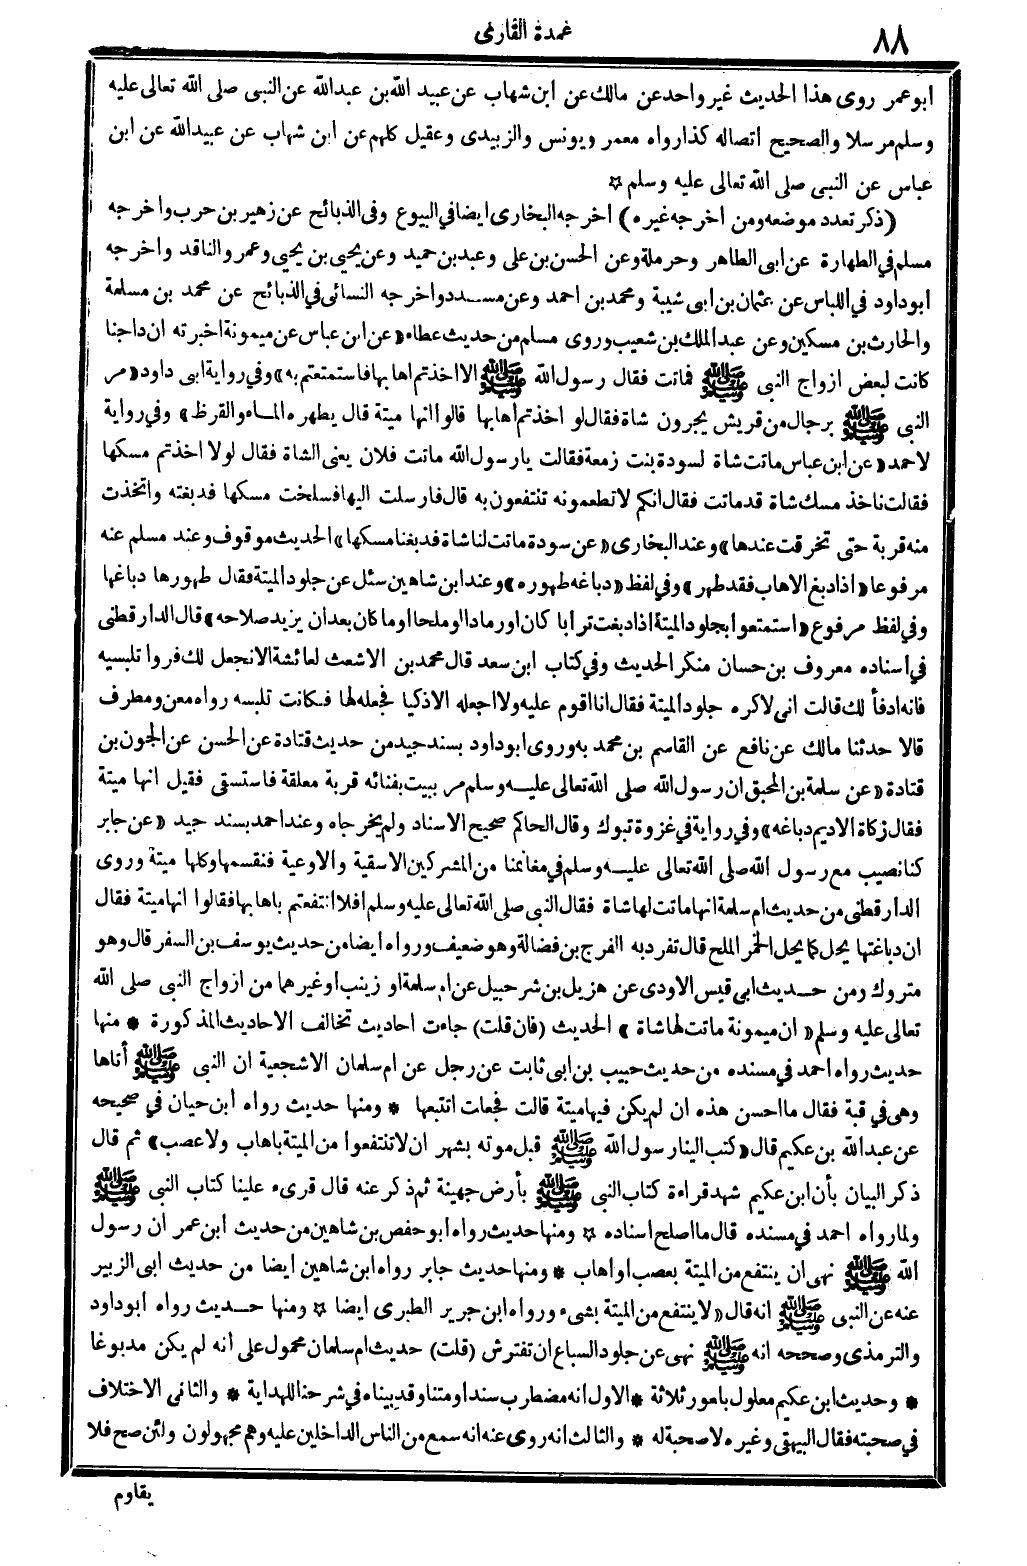 ٨٨
عمدة القارئ
ابو عمر روى هذا الحديث غير واحد عن مالك عن ابن شهاب عن عبيد الله بن عبدالله عن النبى صلى الله تعالى عليه
وسلم مرسلا والصحيح اتصاله كذا رواه معمر ويونس والزبيدى وعقيل كلهم عن ابن شهاب عن عبيدالله عن ابن
عباس عن النبى صلى الله تعالى عليه وسلم ☆
(ذكر تعدد موضعه ومن اخرجه غيره) اخرجه البخارى ايضا في البيوع وفى الذبائح عن زهير بن حرب واخرجه
مسلم في الطهارة عن ابى الطاهر وحرملة وعن الحسن بن على وعبد بن حميد وعن يحيى بن يحيى وعمرو الناقد واخرجه
ابو داود في اللباس عن عثمان بن ابى شيبة ومحمد بن احمد وعن مسدد واخرجه النسائى في الذبائح عن محمد بن مسلمة
والحارث بن مسكين وعن عبد الملك بن شعيب وروى مسلم من حديث عطاء «عن ابن عباس عن ميمونة اخبرته ان داجنا
كانت لبعض ازواج النبى ﷺ فماتت فقال رسول الله ﷺ الا اخذتم اهابها فاستمتعتم به» وفي رواية ابى داود «مر
النبى ﷺ برجال من قريش يجرون شاة فقال لو اخذتم اهابها قالوا انها ميتة قال يطهره الماء والقرظ» وفي رواية
لاحمد «عن ابن عباس ماتت شاة لسودة بنت زمعة فقالت يارسول الله ماتت فلان يعنى الشاة فقال لولا اخذتم مسكها
فقالت ناخذ مسك شاة قد ماتت فقال انكم لا تطعمونه تنتفعون به قال فارسلت اليها فسلخت مسكها فدبغته واتخذت
منه قربة حتى تخرقت عندها» وعند البخارى «عن سودة ماتت لنا شاة فدبغنا مسكها» الحديث موقوف وعند مسلم عنه
مرفوعا «اذا دبغ الاهاب فقد طهر» وفي لفظ «دباغه طهوره» وعند ابن شاهين سئل عن جلود الميتة فقال طهورها دباغها
وفي لفظ مرفوع «استمتعوا بجلود الميتة اذا دبغت ترابا كان او رمادا او ملحا او ما كان بعد ان يزيد صلاحه» قال الدارقطنى
في اسناده معروف بن حسان منكر الحديث وفي كتاب ابن سعد قال محمد بن الاشعث لعائشة الا نجعل لك فروا تلبسيه
فانه ادفأ لك قالت انى لاكره جلود الميتة فقال انا اقوم عليه ولا اجعله الا ذكيا فجعله لها فكانت تلبسه رواه معن ومطرف
قالا حدثنا مالك عن نافع عن القاسم بن محمد به وروى ابو داود بسند جيد من حديث قتادة عن الحسن عن الجون بن
قتادة «عن سلمة بن المحبق ان رسول الله صلى الله تعالى عليه وسلم مر ببيت بفنائه قربة معلقة فاستسقى فقيل انها ميتة
فقال زكاة الاديم دباغه» وفي رواية في غزوة تبوك وقال الحاكم صحيح الاسناد ولم يخرجاه وعند احمد بسند جيد «عن جابر
كنا نصيب مع رسول الله صلى الله تعالى عليه وسلم في مغانمنا من المشركين الاسقية والاوعية فنقسمها وكلها ميتة وروى
الدار قطنى من حديث ام سلمة انها ماتت لها شاة فقال النبى صلى الله تعالى عليه وسلم افلا انتفعتم باهابها فقالوا انها ميتة فقال
ان دباغتها يحل كما يحل الخمر الملح قال تفرد به الفرج بن فضالة وهو ضعيف ورواه ايضا من حديث يوسف بن السفر قال وهو
متروك ومن حديث ابى قيس الاودى عن هزيل بن شرحبيل عن ام سلمة او زينب او غيرهما من ازواج النبى صلى الله
تعالى عليه وسلم «ان ميمونة ماتت لها شاة» الحديث (فان قلت) جاءت احاديث تخالف الاحاديث المذكورة * منها
حديث رواه احمد في مسنده من حديث حبيب بن ابى ثابت عن رجل عن ام سلمان الاشجعية ان النبى ﷺ أتاها
وهى في قبة فقال ما احسن هذه ان لم يكن فيها ميتة قالت فجعلت اتتبعها * ومنها حديث رواه ابن حيان في صحيحه
عن عبدالله بن عكيم قال «كتب الينا رسول الله ﷺ قبل موته بشهر ان لا تنتفعوا من الميتة باهاب ولا عصب» ثم قال
ذكر البيان بأن ابن عكيم شهد قراءة كتاب النبى ﷺ بأرض جهينة ثم ذكر عنه قال قرىء علينا كتاب النبى ﷺ
ولما رواه احمد في مسنده قال ما اصلح اسناده ☆ ومنها حديث رواه ابو حفص بن شاهين من حديث ابن عمر ان رسول
الله ﷺ نهى ان ينتفع من الميتة بعصب او اهاب * ومنها حديث جابر رواه ابن شاهين ايضا من حديث ابى الزبير
عنه عن النبى ﷺ انه قال «لا ينتفع من الميتة بشىء ورواه ابن جرير الطبرى ايضا ☆ ومنها حديث رواه ابو داود
والترمذى وصححه انه ﷺ نهى عن جلود السباع ان تفترش (قلت) حديث ام سلمان محمول على أنه لم يكن مدبوغا
* وحديث ابن عكيم معلول بامور ثلاثة * الاول انه مضطرب سندا ومتنا وقد بيناه في شرحنا للهداية * والثانى الاختلاف
في صحبته فقال البيهقى وغيره لا صحبة له * والثالث انه روى عنه انه سمع من الناس الداخلين عليه وهم مجهولون ولئن صح فلا
يقاوم